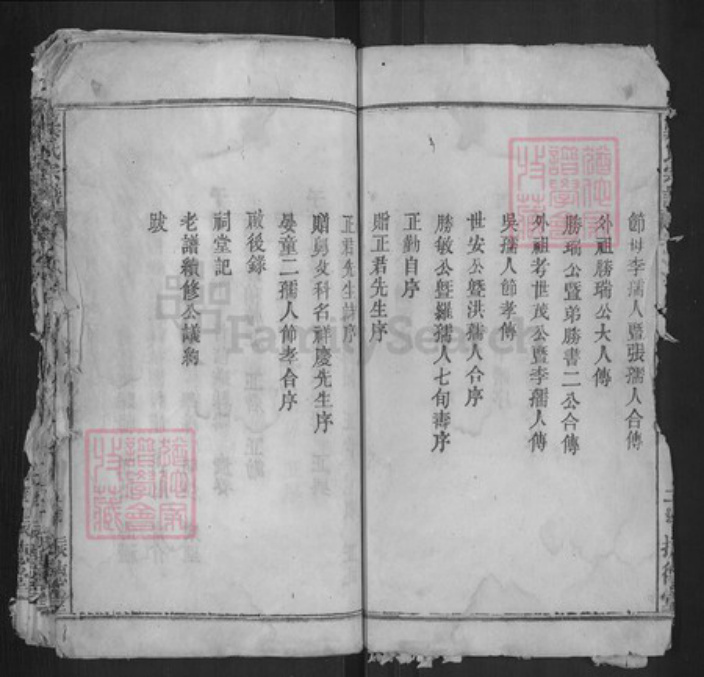 節母李孺人暨張孺人合傳
外祖勝瑞公大人傳
勝瑞公暨弟勝書二公合傳
外祖考世茂公暨李孺人傳
吳孺人節孝傳
世安公暨洪孺人合序
勝敏公暨羅孺人七旬壽序
正勤自序
贈正君先生序
正君先生詩序
贈舅父科名祥慶先生序
晏童二孺人節孝合序
啟後錄
祠堂記
老譜續修公議約
跋
FamilySearch